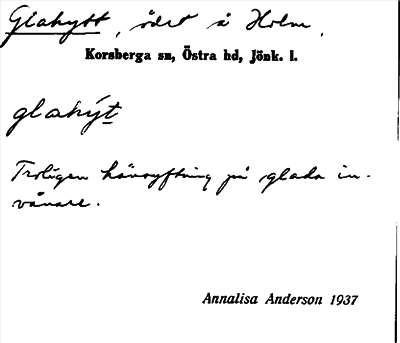 Glakytt, ödet å Holm.
Korsberga sn, Östra hd, Jönk. l.
glakýt
Troligen hänsyftning på glada in-
vånare.
Annalisa Anderson 1937